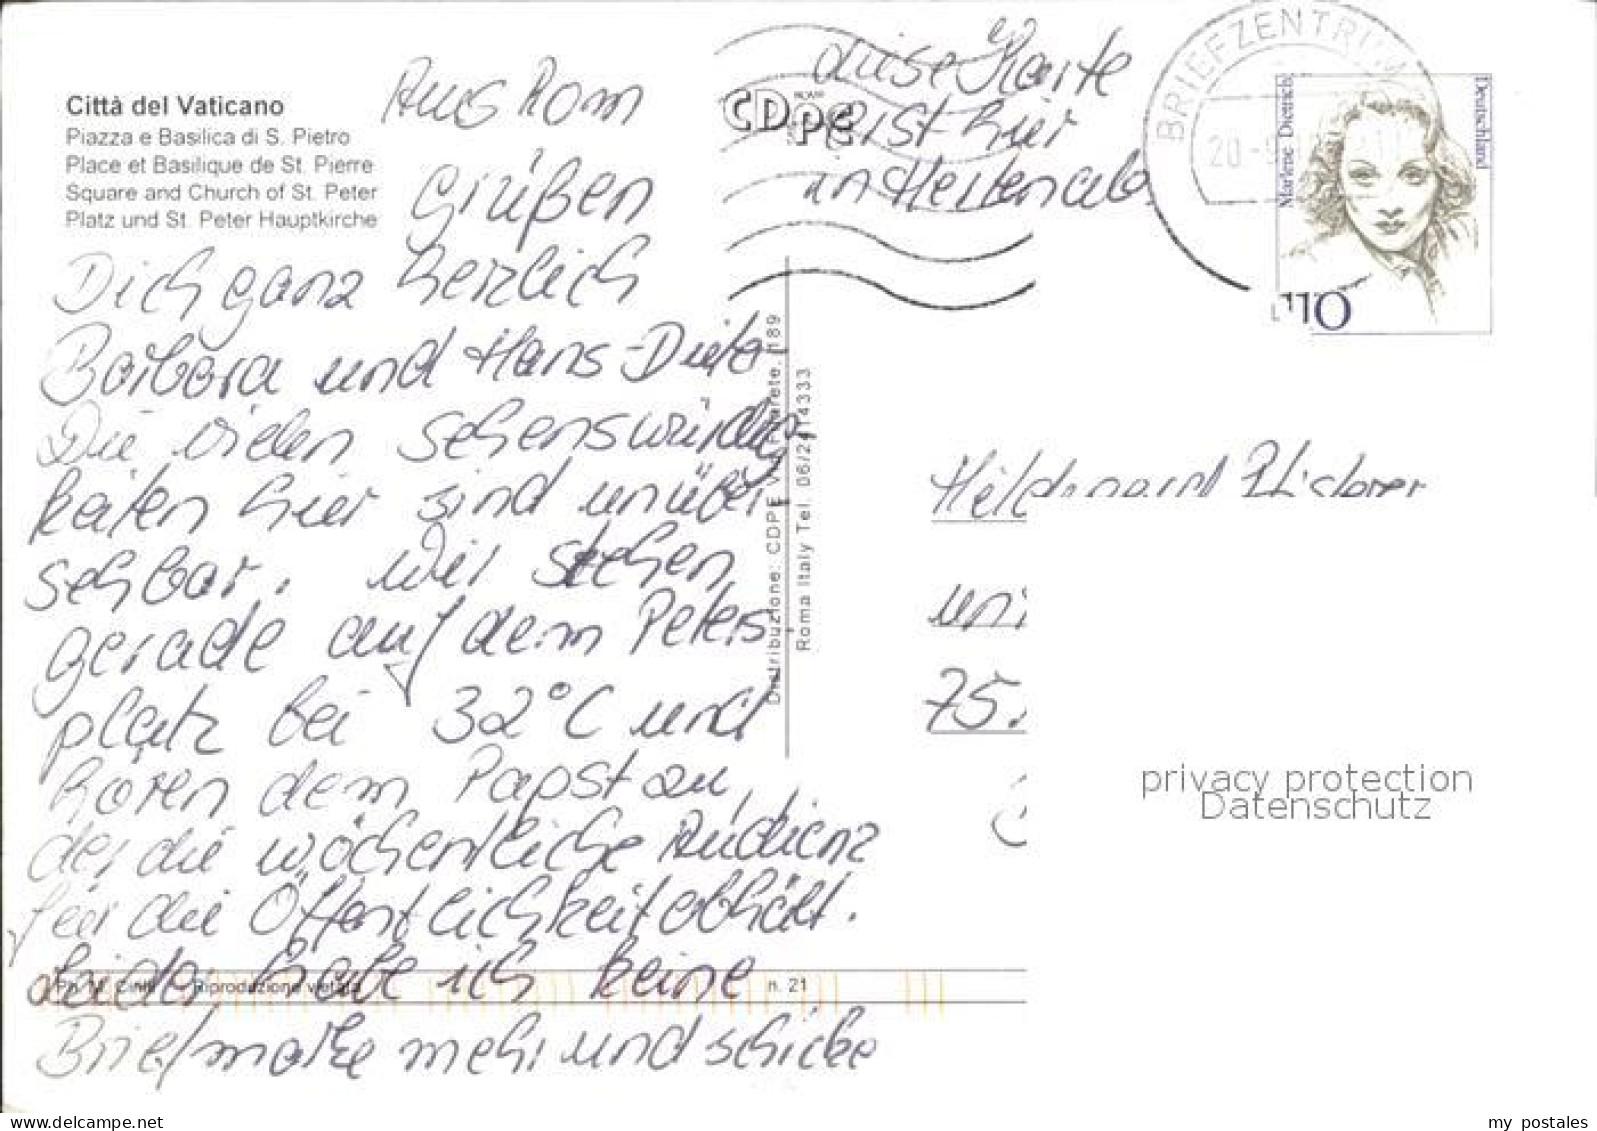 Città del Vaticano
Piazza e Basilica di S. Pietro
Place et Basilique de St. Pierre
Square and Church of St. Peter
Platz und St. Peter Hauptkirche
Aus Rom
Grüßen
Dich ganz herzlich
Barbara und Hans-Dieter
Die vielen Sehenswürdig-
keiten hier sind unüber
sehbar. Wir stehen
gerade auf dem Peters
platz bei 32°C und
hören dem Papst zu,
der die wöchentliche Audienz
für die Öffentlichkeit abhält.
Leider habe ich keine
Briefmarke mehr und schicke
diese Karte
erst hier
in Herrenalb
CDPE
ROMA
Distribuzione: CDPE V. 189
Roma Italy Tel. 06/24 14333
Riproduzione vietata
n. 21
BRIEFZENTRUM
20
Marlene Dietrich
Deutschland
110
Hildegard
75
privacy protection
Datenschutz
www.delcampe.net
my postales